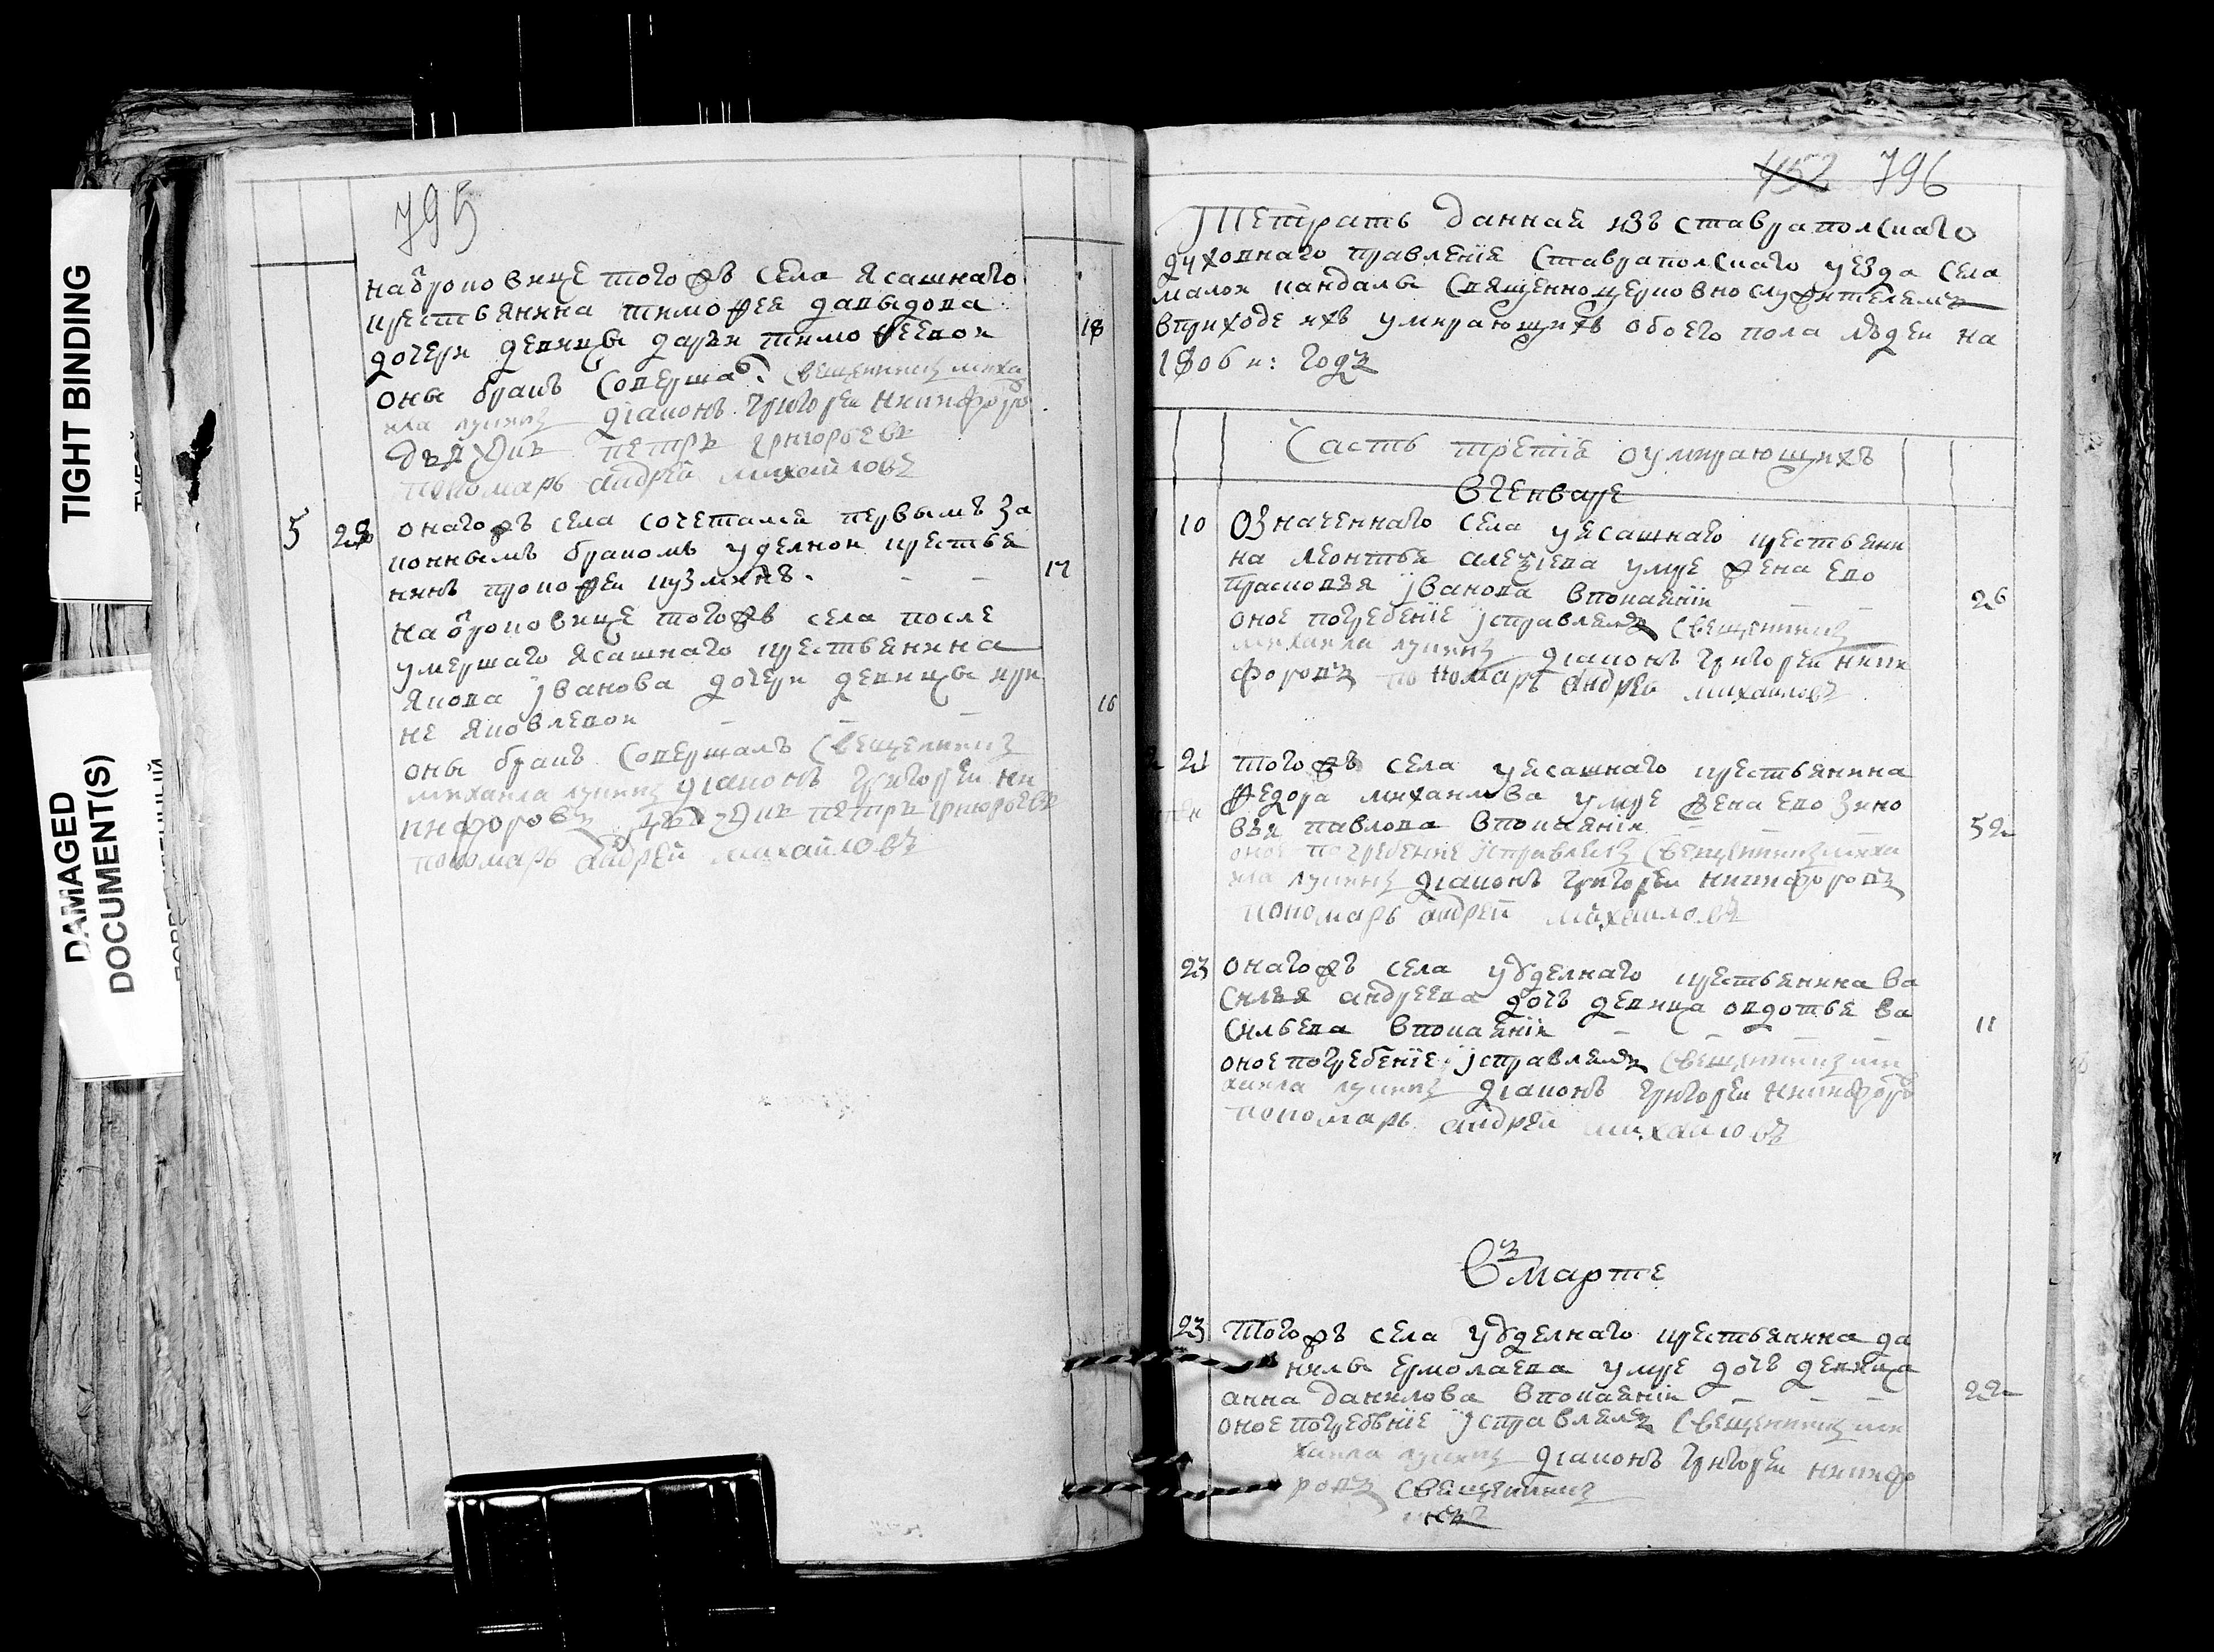 TIGHT BINDING
DAMAGED
DOCUMENT(S)
795
на отроковице тогожъ села ясашнаго
крестьянина тимофея давыдова
дочери девицы дарьи тимофеевои
18
оны бракъ совершалъ священникъ миха
ила лукинъ діаконъ григореи никифоро
дьячикъ петръ григорьевъ
пономарь андрей михайловъ
5 28 онагожъ села сочетался первымъ за
коннымъ бракомъ уделнои крестья
нинъ прокофеи кузминъ. 17
на отроковице тогожъ села после
умершаго ясашнаго крестьянина
якова јванова дочери девицы ири
не яковлевои 16
оны бракъ совершалъ священникъ
михаила лукинъ діаконъ григореи ни
кифоровъ дьячикъ петръ григорьевъ
пономарь андрей михайловъ
452 796
Тетрать данная изъ ставрополскаго
духовнаго правленїе ставрополскаго уезда села
малои кандалы священноцерковнослужителемъ
вприходе ихъ умирающихъ обоего пола людеи на
1806 и: годъ
Часть третіе оумирающихъ
вгенваре
10 Означеннаго села уясашнаго крестьяни
на леонтья алеѯіева умре жена ево
прасковья јванова впокаянїи 26
оное погребенїе јсправлялъ священникъ
михаила лукинъ діаконъ григореи ники
форовъ пономарь андрей михайловъ
21 тогожъ села уясашнаго крестьянина
федора михаилова умре жена ево зино
вья павлова впокаянїи 52
оное погребение јсправлялъ священникъ миха
ила лукинъ діаконъ григореи никифоровъ
пономарь андрей михайловъ
23 онагожъ села уўделнаго крестьянина ва
силья андреева дочь девица овдотья ва
сильева впокаянїи 11
оное погребенїе јсправлялъ священникъ ми
хаила лукинъ діаконъ григореи никифоро
пономарь андрей михайловъ
Въ марте
23 тогожъ села уўделнаго крестьянина да
нилы ермолаева умре дочь девица
анна данилова впокаянїи 22
оное погребенїе јсправлялъ священникъ ми
хаила лукинъ діаконъ григореи никифо
ровъ священникъ